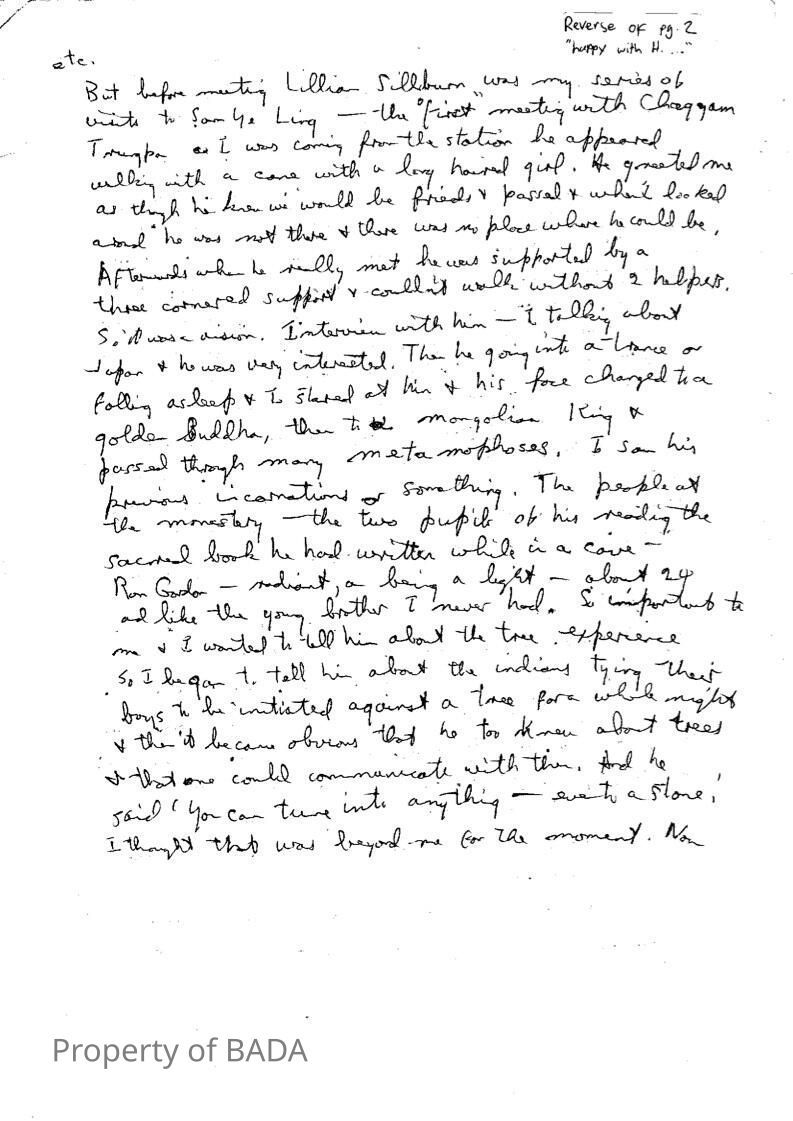 Reverse of pg. 2
"happy with H. ..."
etc.
But before meeting Lillian Sillburn was my series of
visits to Sam Ye Ling — the "first" meeting with Choggam
Trungpa as I was coming from the station he appeared
walking with a cane with a long haired girl. He greeted me
as though he knew we would be friends & passed & when I looked
around he was not there & there was no place where he could be.
Afterwards when he really met he was supported by a
three cornered support & couldn't walk without 2 helpers.
So it was a vision. Interview with him — I talking about
Japan & he was very interested. Then he going into a trance or
falling asleep & I stared at him & his face changed to a
golden Buddha, then to a mongolian King &
passed through many metamophoses. I saw his
previous incarnations or something. The people at
the monastery — the two pupils of his reading the
sacred book he had written while in a cave —
Ron Gordon — radiant, a being a light — about 24
and like the young brother I never had. So important to
me & I wanted to tell him about the tree experience
So I began to tell him about the indians tying their
boys to be initiated against a tree for a whole night
& then it became obvious that he too knew about trees
& that one could communicate with them. And he
said 'You can tune into anything — even to a stone.'
I thought that was beyond me for the moment. Now
Property of BADA